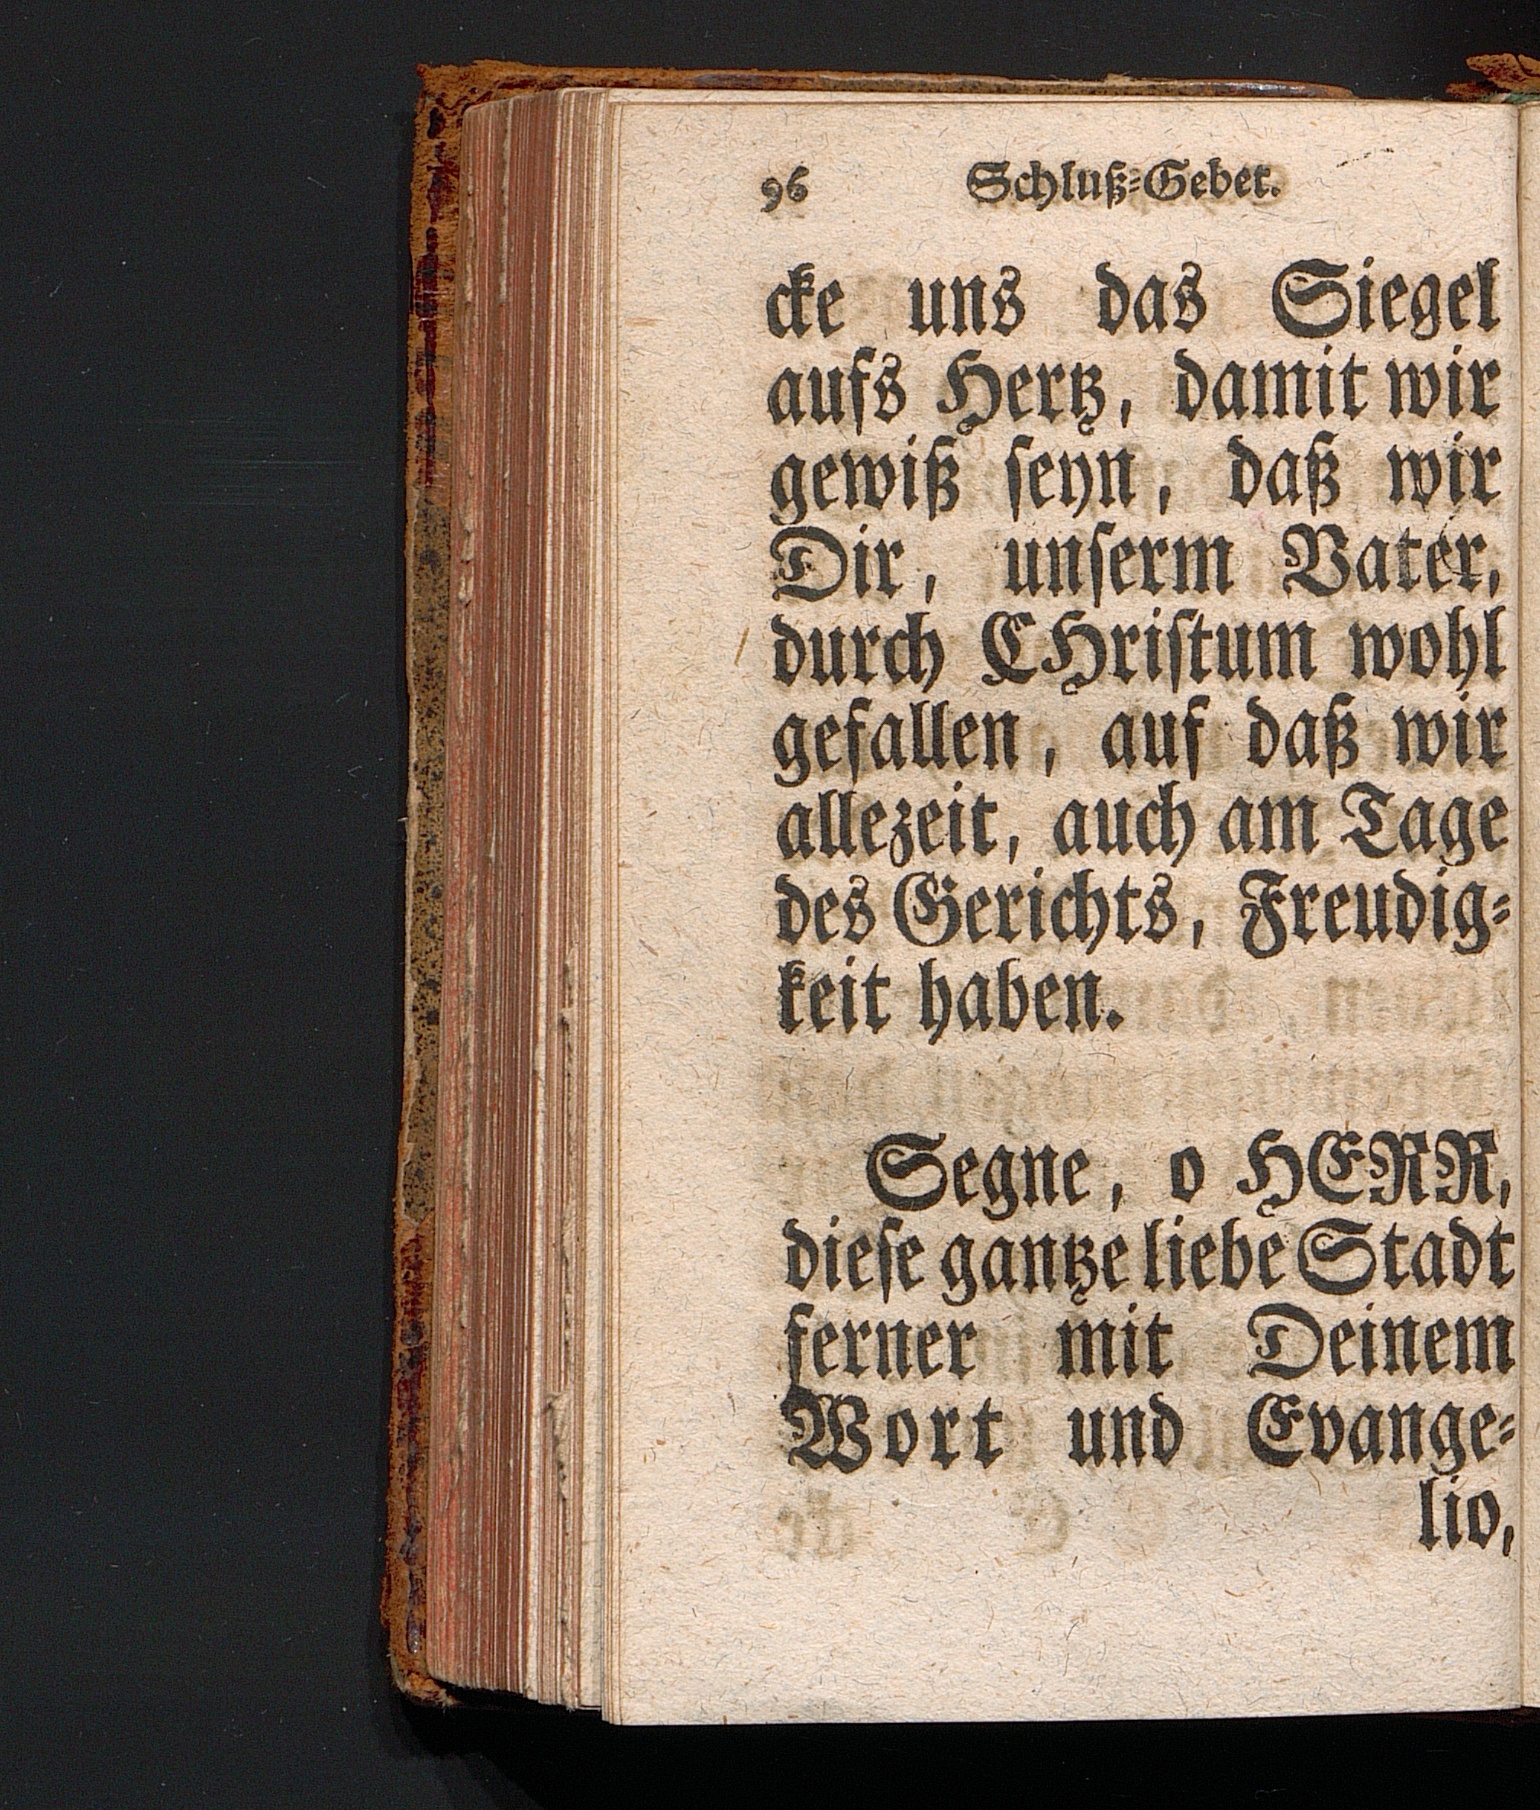 96 Schluß-Gebet.
cke uns das Siegel
aufs Hertz, damit wir
gewiß seyn, daß wir
Dir, unserm Vater,
durch CHristum wohl
gefallen, auf daß wir
allezeit, auch am Tage
des Gerichts, Freudig-
keit haben.
Segne, o HERR,
diese gantze liebe Stadt
ferner mit Deinem
Wort und Evange-
lio,